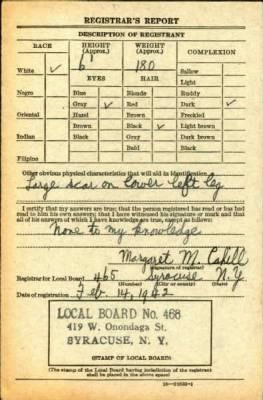 REGISTRAR'S REPORT
DESCRIPTION OF REGISTRANT
RACE HEIGHT (Approx.) WEIGHT (Approx.) COMPLEXION
White ✓ 6' 180 Sallow
EYES HAIR Light
Negro Blue Blonde Ruddy
Gray ✓ Red Dark ✓
Oriental Hazel Brown Freckled
Brown Black ✓ Light brown
Indian Black Gray Dark brown
Bald Black
Filipino
Other obvious physical characteristics that will aid in identification
Large scar on lower left leg
I certify that my answers are true; that the person registered has read or has had
read to him his own answers; that I have witnessed his signature or mark and that
all of his answers of which I have knowledge are true, except as follows:
None to my knowledge
Margaret M. Cahill
(Signature of registrar)
Registrar for Local Board 465 Syracuse N.Y.
(Number) (City or county) (State)
Date of registration Feb. 14, 1942
LOCAL BOARD No. 468
419 W. Onondaga St.
SYRACUSE, N. Y.
(STAMP OF LOCAL BOARD)
(The stamp of the Local Board having jurisdiction of the registrant
shall be placed in the above space)